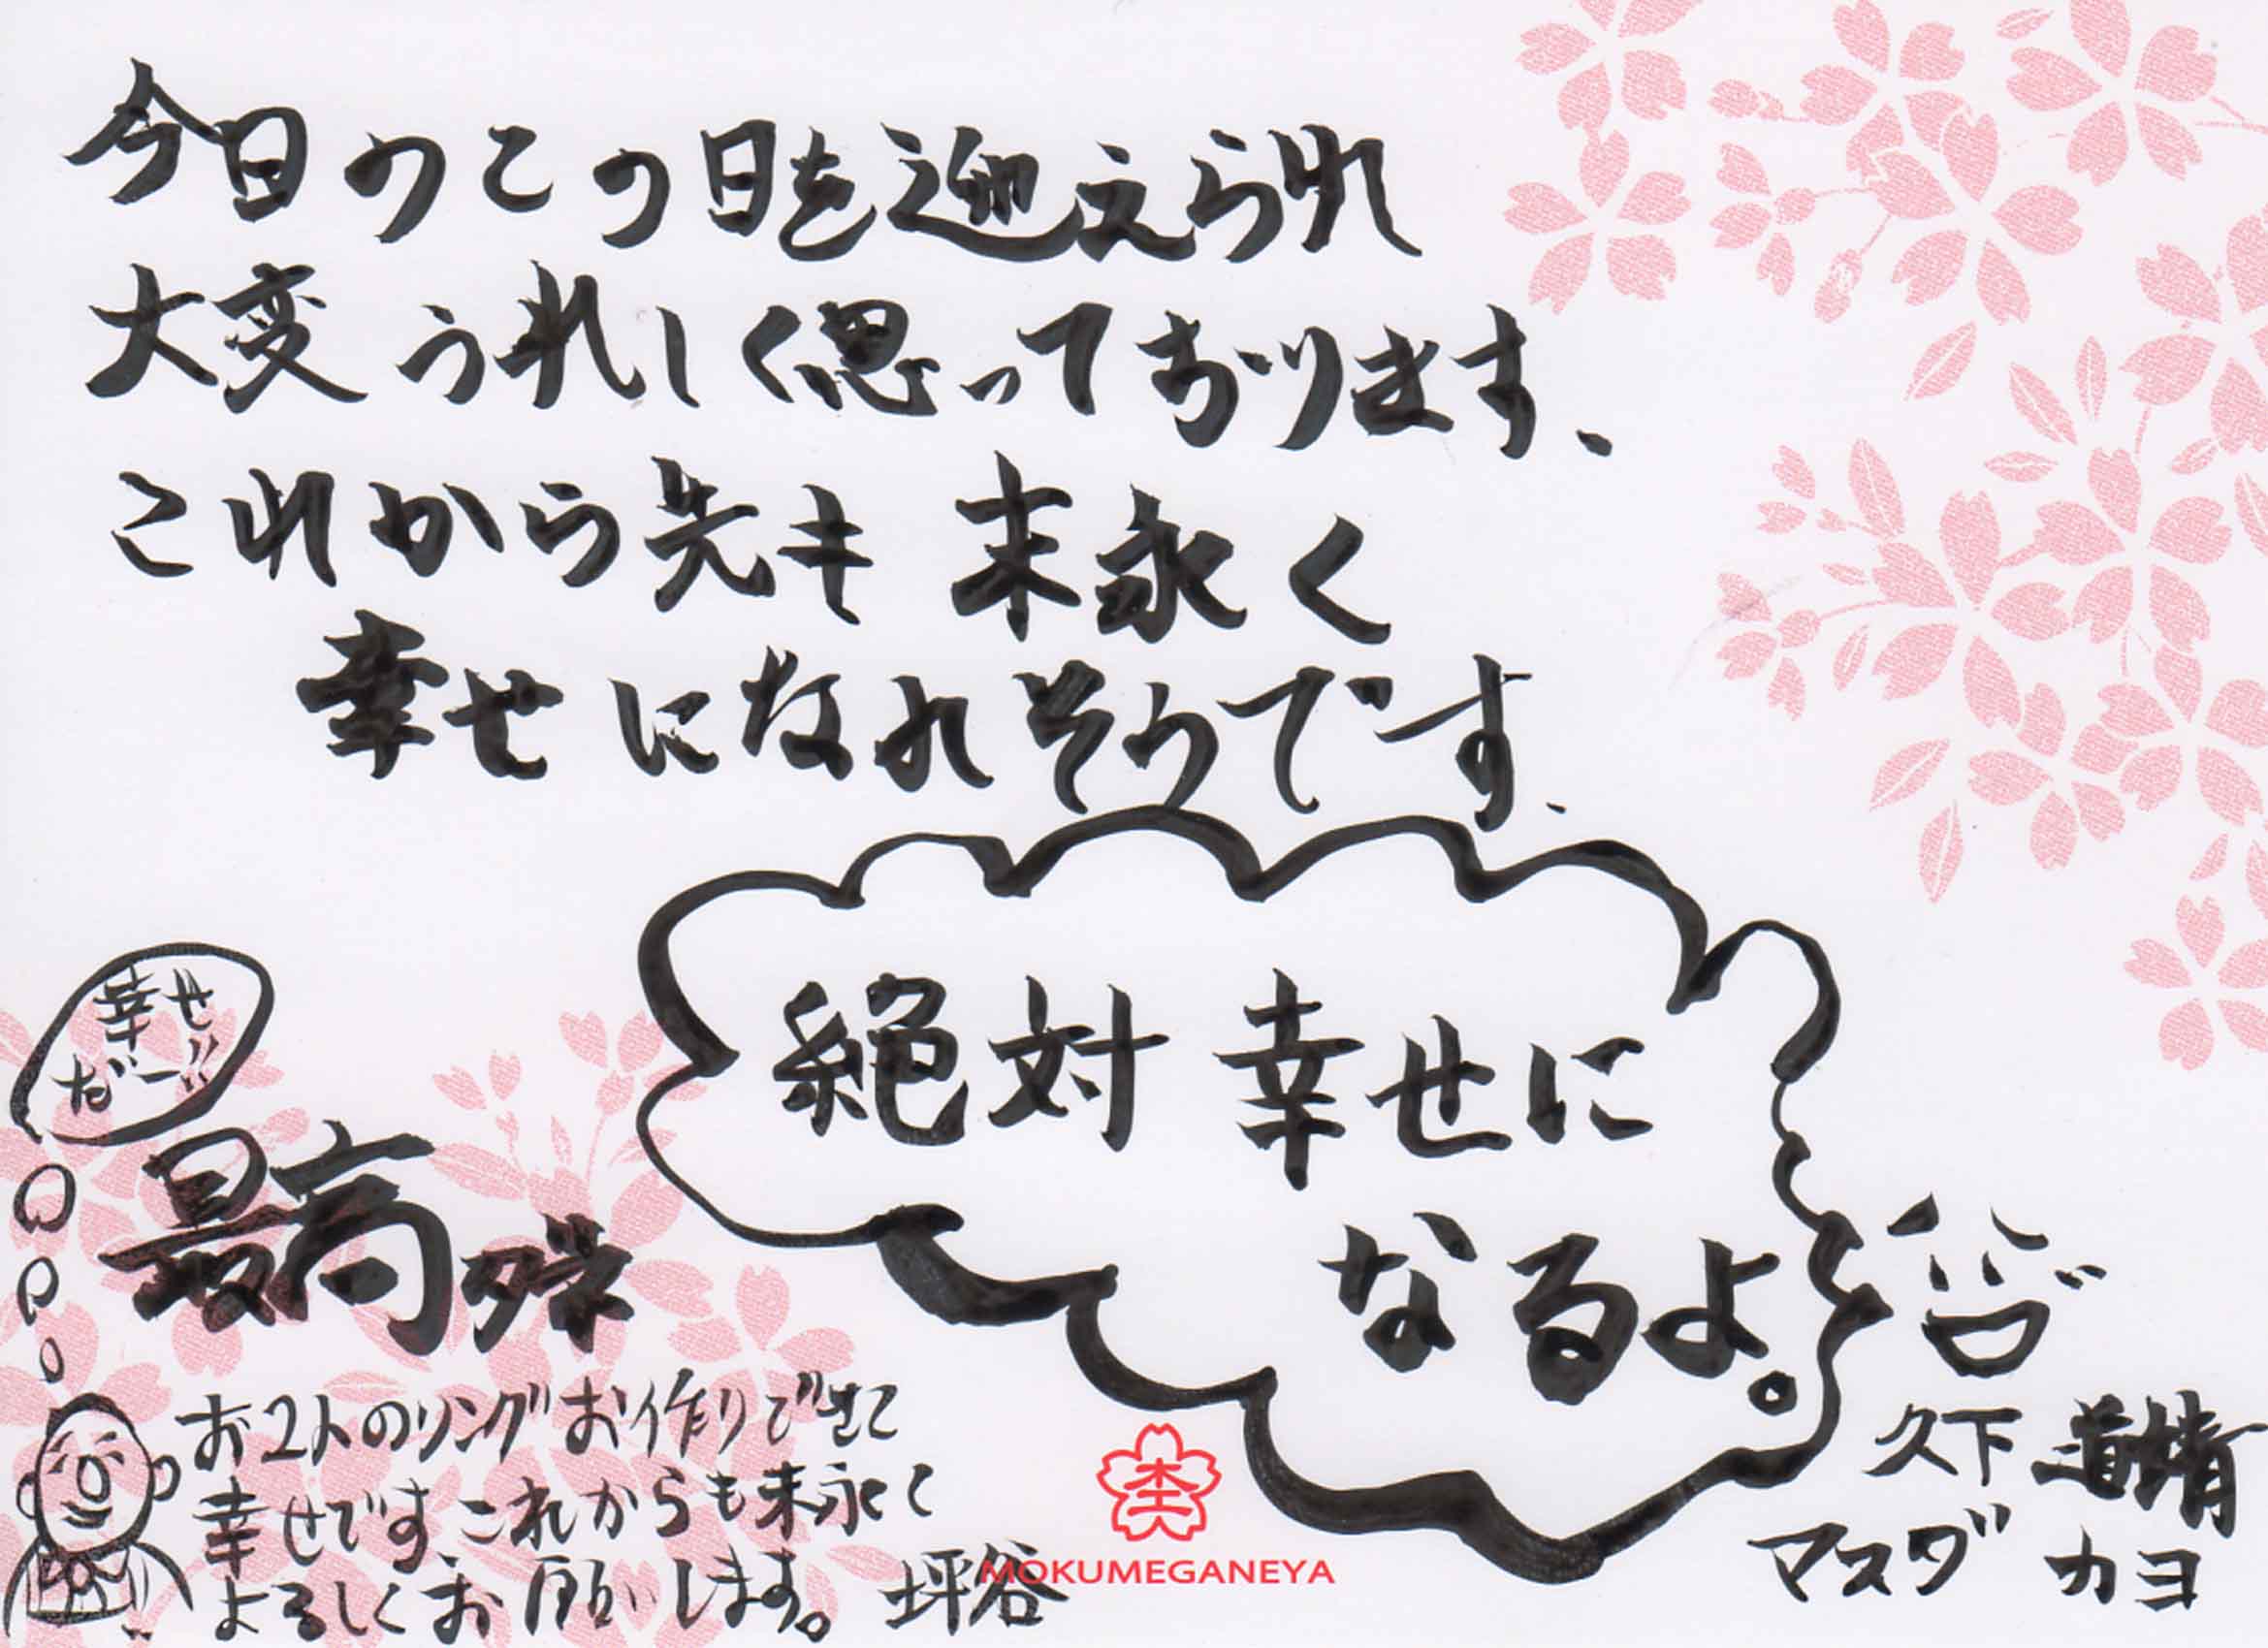 今日のこの日を迎えられ
大変うれしく思っております、
これから先も 末永く
幸せになれそうです、
絶対 幸せに
なるよ。
幸せ
だー!!
最高
お2人のリングお作りできて
幸せです これからも末永く
よろしくお願いします。 坪谷
久下
マスダ カヨ
杢
MOKUMEGANEYA